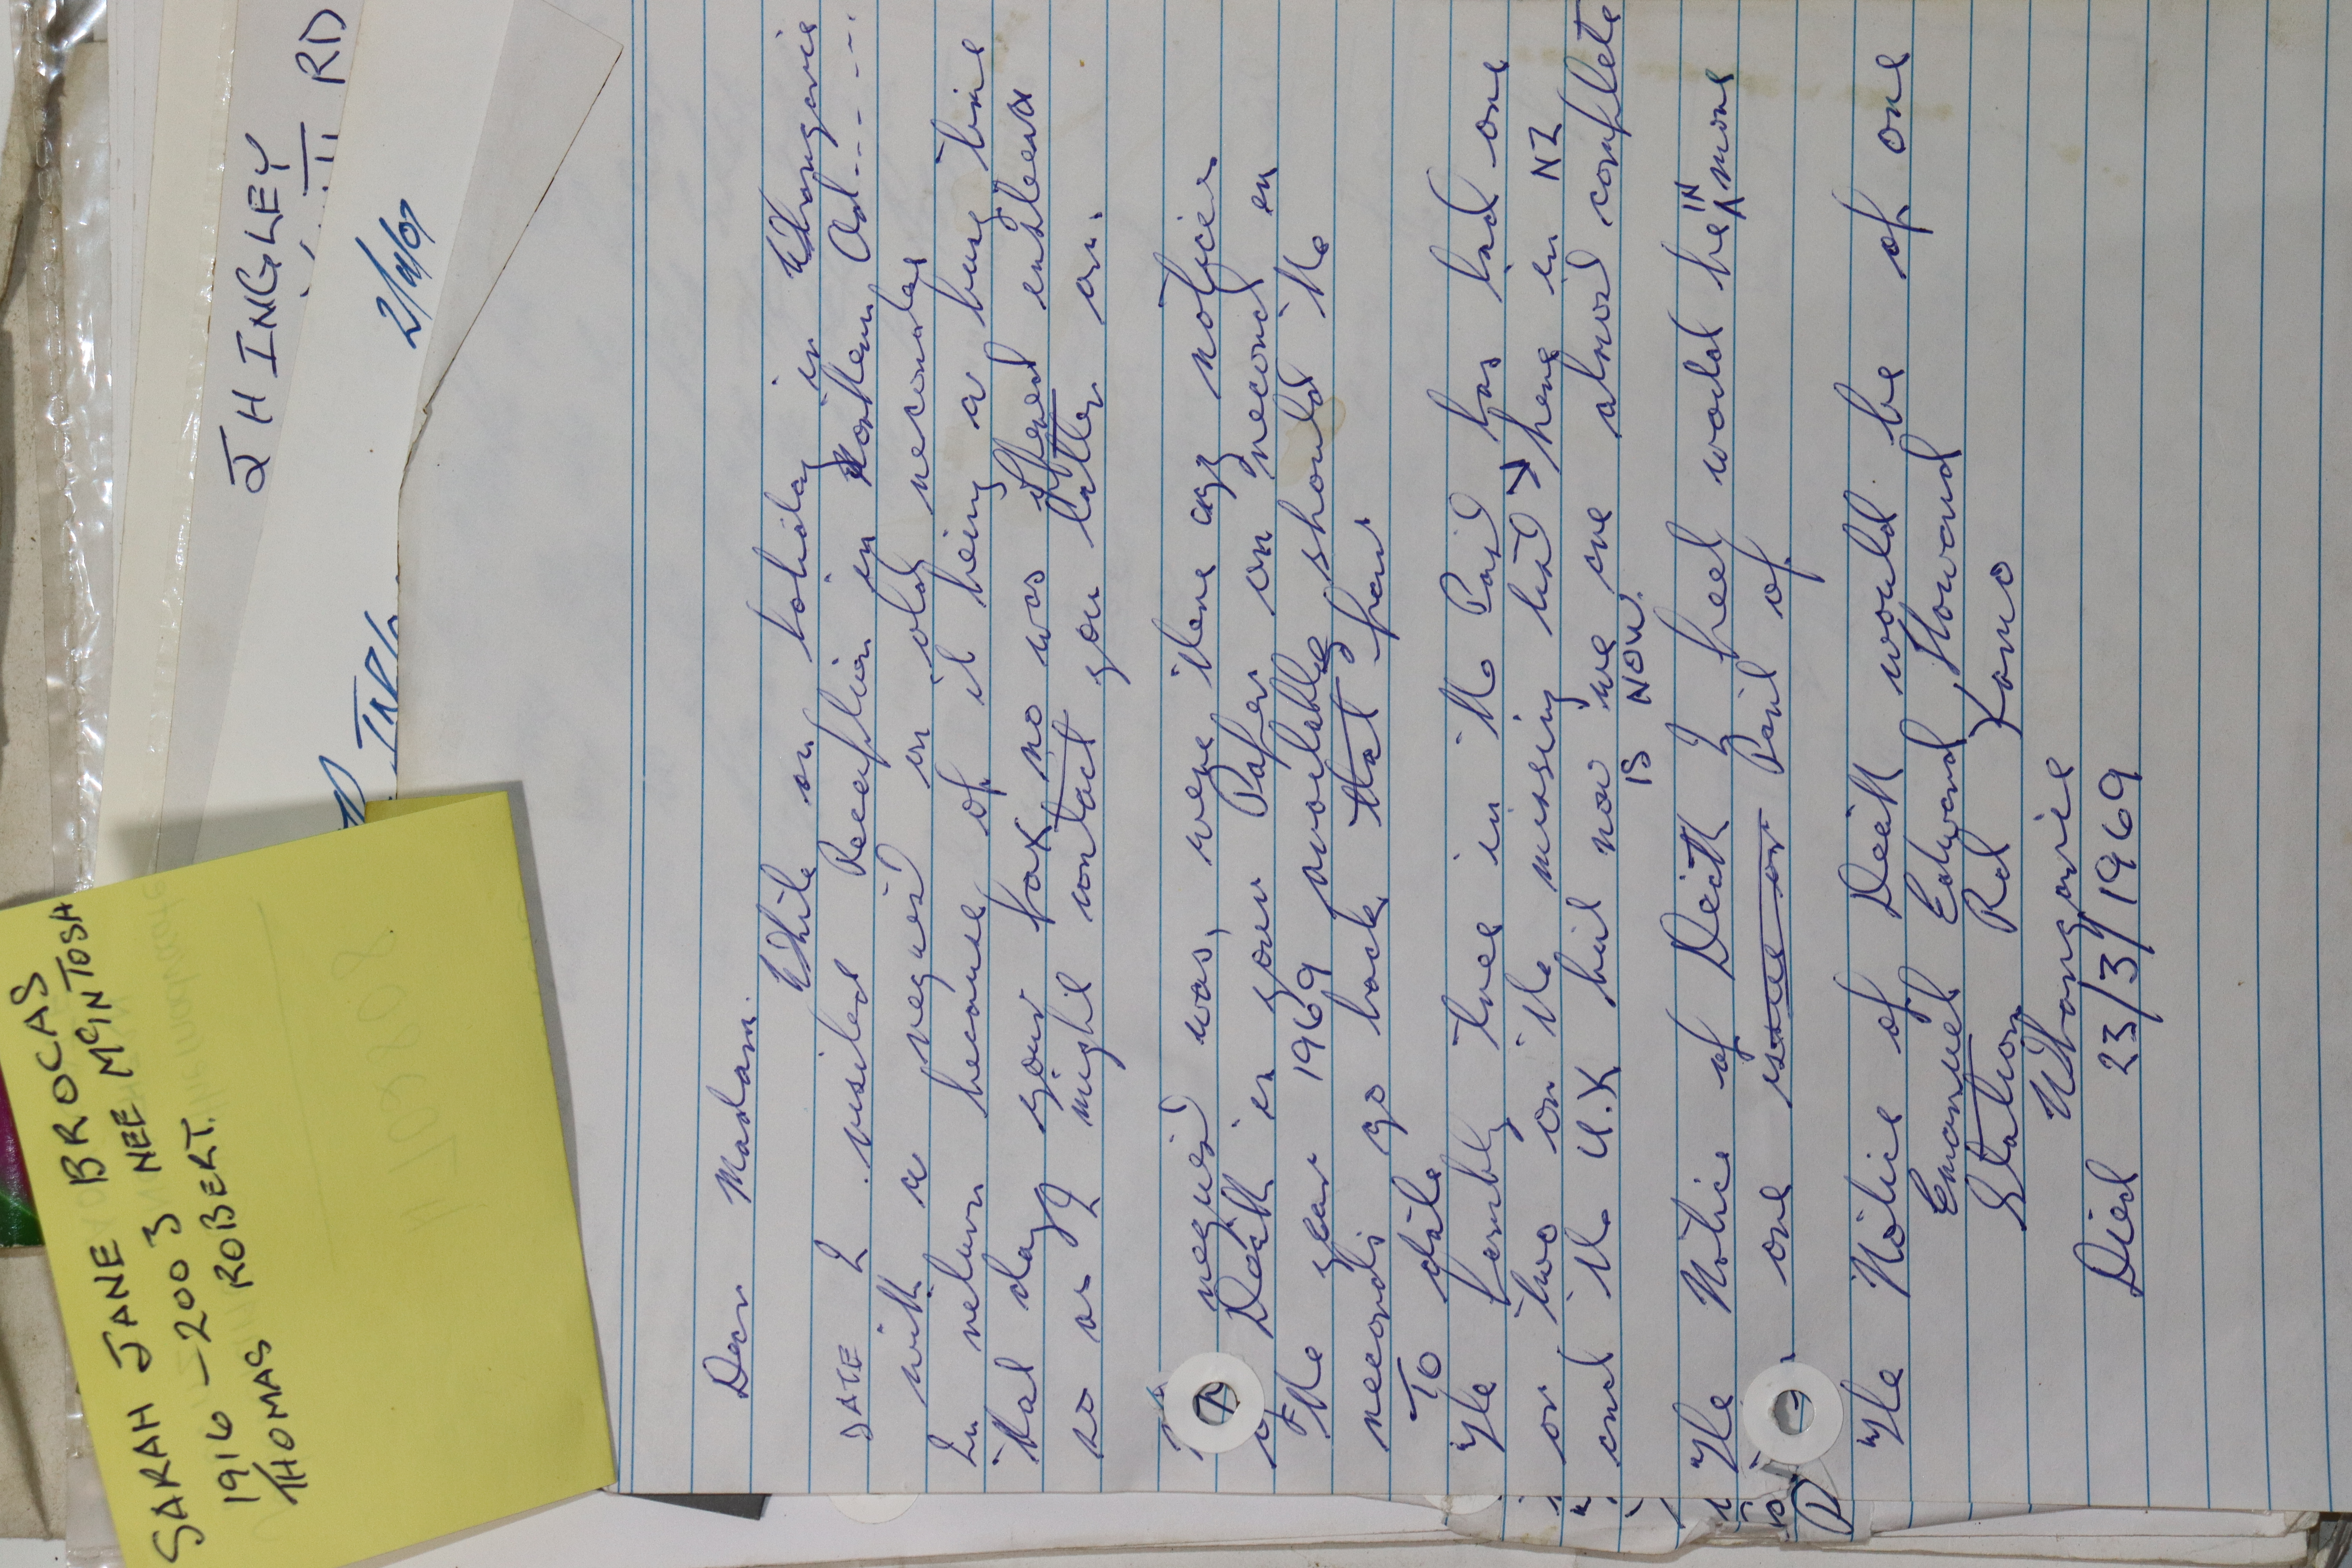 SARAH JANE BROCAS
1916 - 2003 NEE McINTOSH
THOMAS ROBERT.
J HINGLEY
RD
2/4/07
Dear Madam.
While on holiday in Whangarie
DATE I visited Reception in Northern Ad-----
with a request on old records
In return because of it being a busy time
that day your fax no was offered
so as I might contact you latter on.
request was, were there any notfices
of Death in your Paper on record in
the year 1969 available should the
records go back that far
TO date
The family tree in the Past has had one
or two on the missing list → here in NZ
and the U.K but now we are almost complete
IS NOW.
The Notice of Death I feel would be IN more
one issue or Part of
The Notice of Death would be of one
Emanuel Edward Howard
Station Rd Kamo
Whangarie
Died 23/3/1969